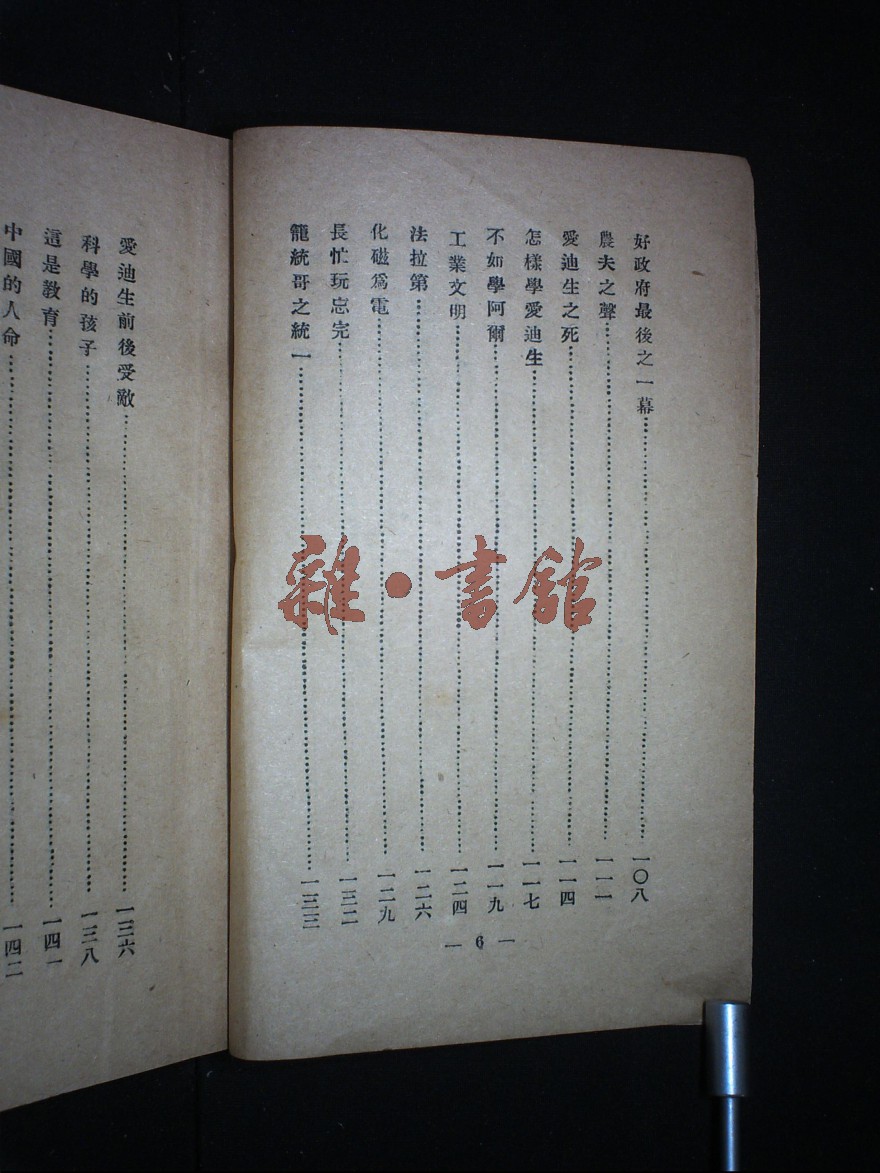 好政府最後之一幕…………一〇八
農夫之聲…………一一一
愛迪生之死…………一一四
怎樣學愛迪生…………一一七
不如學阿爾…………一一九
工業文明…………一二四
法拉第…………一二六
化磁爲電…………一二九
長忙玩忘完…………一三二
籠統哥之統一…………一三三
— 6 —
愛迪生前後受敵…………一三六
科學的孩子…………一三八
這是教育…………一四一
中國的人命…………一四二
雜·書館